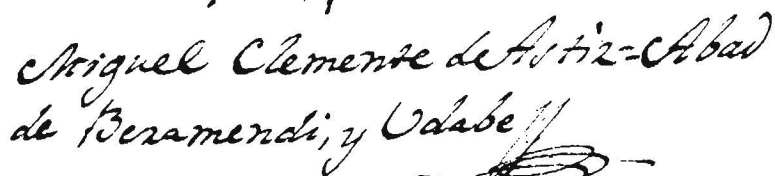 Miguel Clemente de Astiz=Abad
de Beramendi, y Udabe